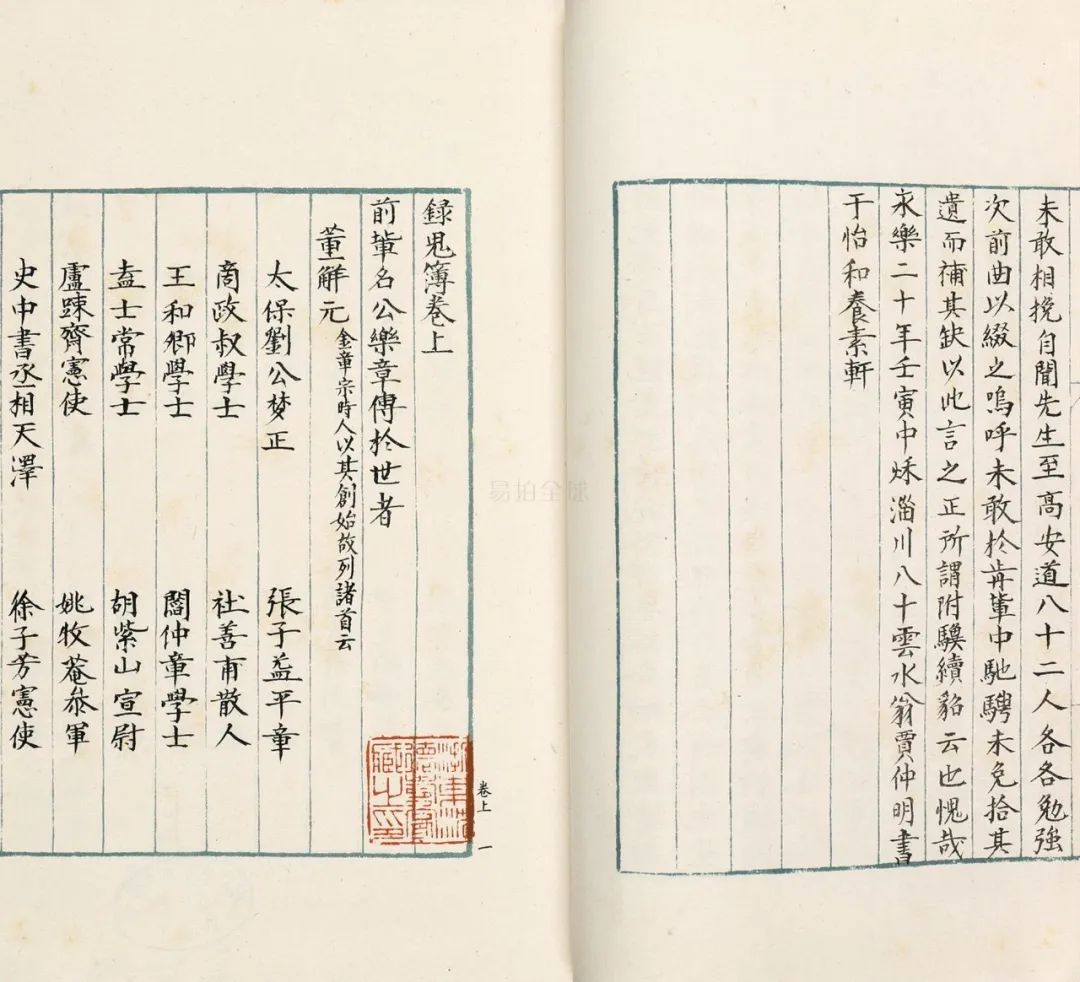 未敢相挽自聞先生至高安道八十二人各各勉強
次前曲以綴之嗚呼未敢於前輩中馳騁未免拾其
遺而補其缺以此言之正所謂附驥續貂云也愧哉
永樂二十年壬寅中秌淄川八十雲水翁賈仲明書
于怡和養素軒
錄鬼簿卷上
前輩名公樂章傳於世者
董解元 金章宗時人以其創始故列諸首云
太保劉公梦正 張子益平章
商政叔學士 杜善甫散人
王和卿學士 閻仲章學士
盍士常學士 胡紫山宣尉
盧踈齋憲使 姚牧菴叅軍
史中書丞相天澤 徐子芳憲使
卷上
一
易拍全球